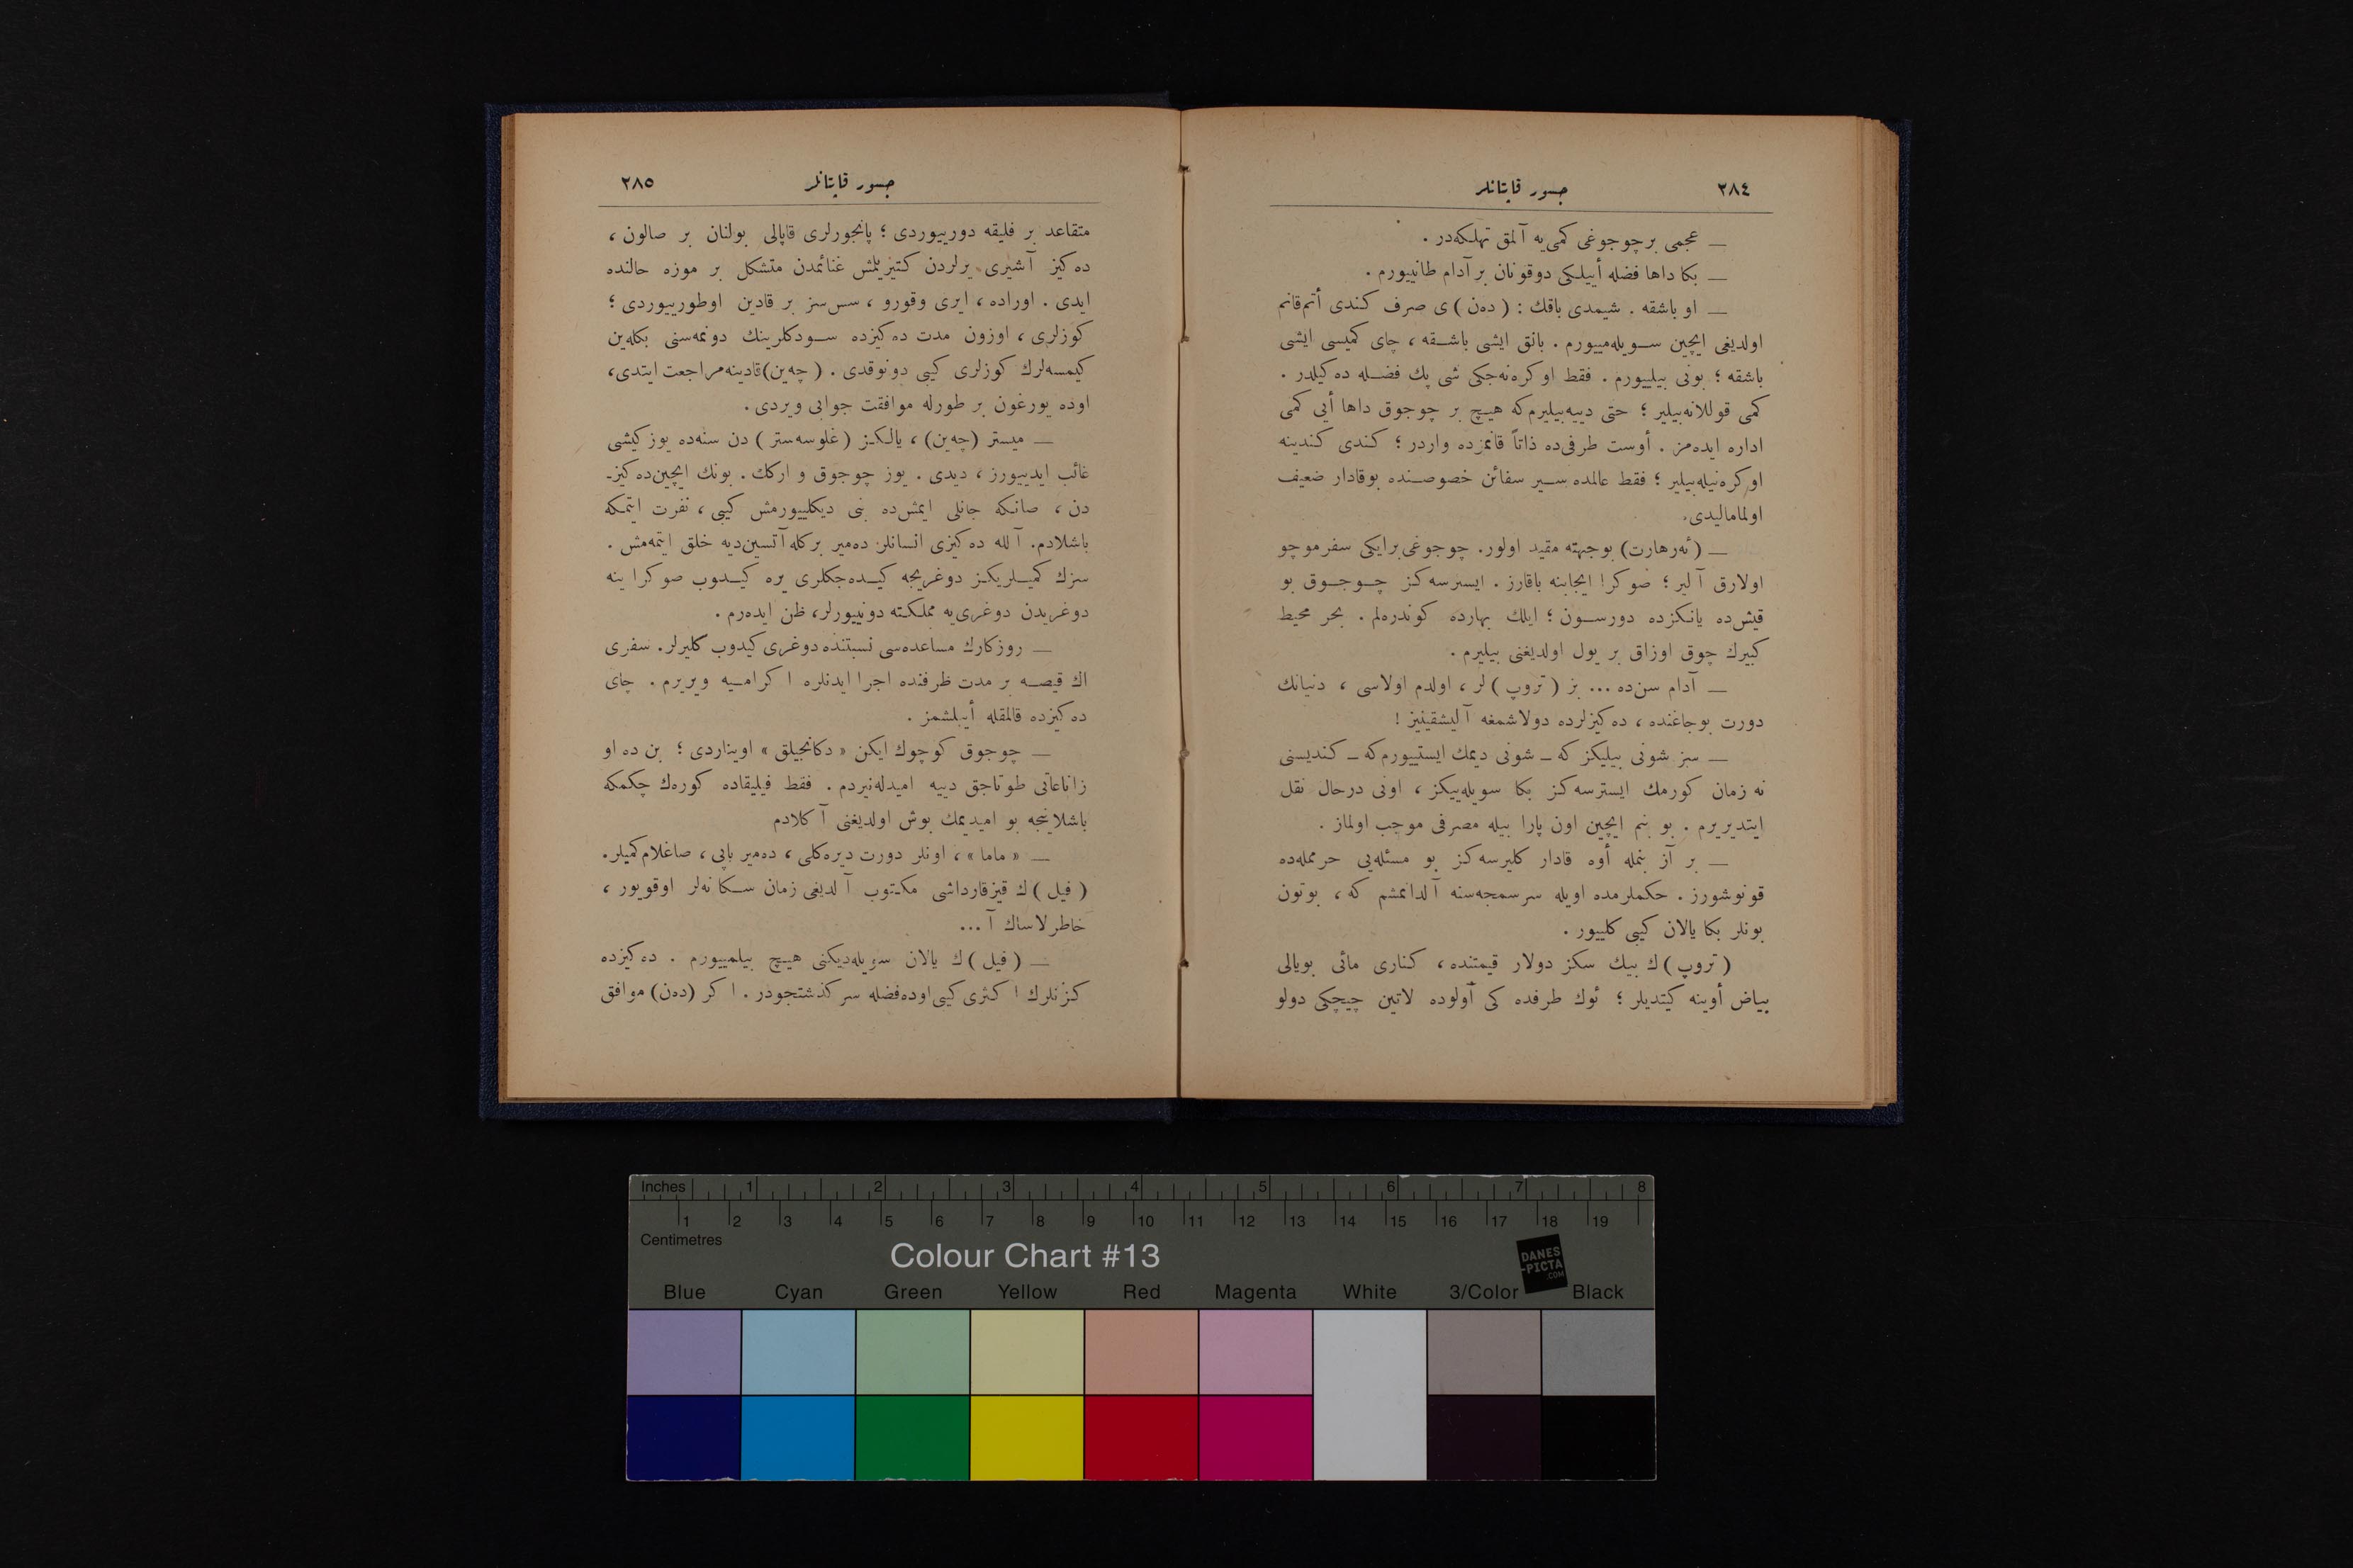 ٢٨٤ جسور قاپتانلر
— عجمی برچوجوغی کمی‌یه آلمق تهلکه‌در .
— بکا داها فضله أییلکی دوقونان بر آدام طانییورم .
— او باشقه . شیمدی باقك : ( ده‌ن ) ی صرف کندی أتم‌قانم
اولدیغی ایچین سویله‌مییورم . بانق ایشی باشقه ، چای کمیسی ایشی
باشقه ؛ بونی بیلییورم . فقط اوکره‌نه‌جکی شی پك فضله ده‌کیلدر .
کمی قوللانه‌بیلیر ؛ حتی دییه‌بیلیرم‌که هیچ بر چوجوق داها أیی کمی
اداره ایده‌مز . أوست طرفی‌ده ذاتاً قانمزده واردر ؛ کندی کندینه
اوکره‌نیله‌بیلیر ؛ فقط عالمده سیر سفائن خصوصنده بوقادار ضعیف
اولمامالیدی.
— (ئه‌رهارت) بوجهته مقید اولور. چوجوغی‌برایکی سفرموچو
اولارق آلیر ؛ صوکرا ایجابنه باقارز . ایسترسه‌کز چوجوق بو
قیش‌ده یانکزده دورسون ؛ ایلك بهارده کوندره‌لم . بحر محیط
کبیرك چوق اوزاق بر یول اولدیغنی بیلیرم .
— آدام سن‌ده ... بز ( تروپ ) لر ، اولدم اولاسی ، دنیانك
دورت بوجاغنده ، ده‌کیزلرده دولاشمغه آلیشقینیز !
— سز شونی بیلیکز که ــ شونی دیمك ایستییورم‌که ــ کندیسنی
نه زمان کورمك ایسترسه‌کز بکا سویله‌ییکز ، اونی درحال نقل
ایتدیریرم . بو بنم ایچین اون پارا بیله مصرفی موجب اولماز .
— بر آز بنمله أوه قادار کلیرسه‌کز بو مسئله‌یی حرممله‌ده
قونوشورز . حکملرمده اویله سرسمجه‌سنه آلدانمشم که ، بوتون
بونلر بکا یالان کیبی کلییور .
( تروپ ) ك بیك سکز دولار قیمتنده ، کناری مائی بویالی
بیاض أوینه کیتدیلر ؛ ئوك طرفده کی آولوده لاتین چیچکی دولو
جسور قاپتانلر ٢٨٥
متقاعد بر فلیقه دورییوردی ؛ پانجورلری قاپالی بولنان بر صالون ،
ده‌کیز آشیری یرلردن کتیریلمش غنائمدن متشکل بر موزه حالنده
ایدی . اوراده ، ایری وقورو ، سس‌سز بر قادین اوطورییوردی ؛
کوزلری ، اوزون مدت ده‌کیزده سودکلرینك دونمه‌سنی بکله‌ین
کیمسه‌لرك کوزلری کیبی دونوقدی . ( چه‌ین)قادینه‌مراجعت ایتدی،
اوده یورغون بر طورله موافقت جوابی ویردی .
— میستر (چه‌ین) ، یالکز ( غلوسه‌ستر ) دن سنه‌ده یوز کیشی
غائب ایدییورز ، دیدی . یوز چوجوق و ارکك . بونك ایچین‌ده‌کیز-
دن ، صانکه جانلی ایمش‌ده بنی دیکلییورمش کیبی ، نفرت ایتمکه
باشلادم. آلله ده‌کیزی انسانلر ده‌میر برکله آتسین‌دیه خلق ایتمه‌مش .
سزك کمیلریکز دوغریجه کیده‌جکلری یره کیدوب صوکرا ینه
دوغریدن دوغری‌یه مملکته دونییورلر، ظن ایده‌رم .
— روزکارك مساعده‌سی نسبتنده دوغری کیدوب کلیرلر. سفری
اك قیصه بر مدت ظرفنده اجرا ایدنلره اکرامیه ویریرم . چای
ده‌کیزده قالمقله أییلشمز .
— چوجوق کوچوك ایکن « دکانجیلق » اویناردی ؛ بن ده او
زاناعاتی طوتاجق دییه امیدله‌نیردم . فقط فیلیقاده کوره‌ك چکمکه
باشلاینجه بو امیدیمك بوش اولدیغنی آکلادم
— « ماما » ، اونلر دورت دیره‌کلی ، ده‌میر یاپی ، صاغلام‌کمیلر.
( فیل ) ك قیزقارداشی مکتوب آلدیغی زمان سکا نه‌لر اوقویور ،
خاطرلاساك آ ...
— ( فیل ) ك یالان سویله‌دیکنی هیچ بیلمییورم . ده‌کیزده
کزنلرك اکثری کیبی‌اوده‌فضله سرکذشتجودر . اکر (ده‌ن) موافق
Inches 1 2 3 4 5 6 7 8
1 2 3 4 5 6 7 8 9 10 11 12 13 14 15 16 17 18 19
Centimetres
Colour Chart #13
DANES
-PICTA
.COM
Blue Cyan Green Yellow Red Magenta White 3/Color Black